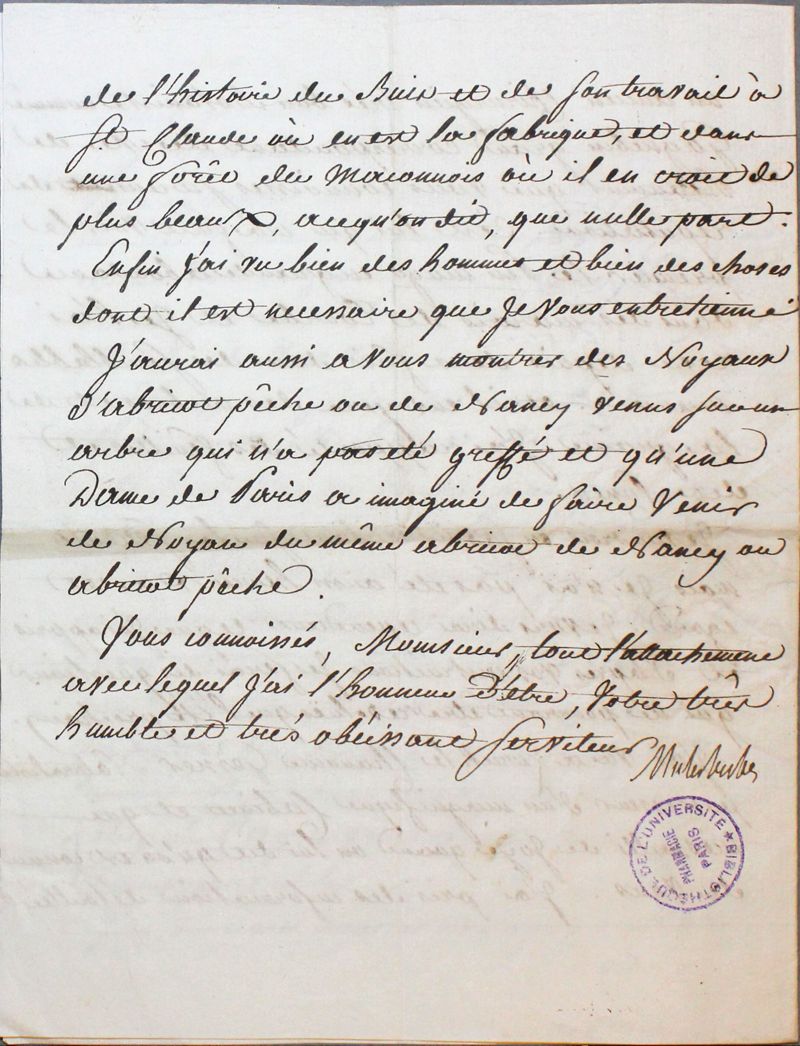 de l'histoire du Buis et de son travail à
St Claude où en est la fabrique, et dans
une forêt du Maconnois où il en croit de
plus beaux, acequ'on dit, que nulle part.
Enfin j'ai vu bien des hommes et bien des choses
dont il est necessaire que je vous entretienne
J'aurai aussi a vous montrer des Noyaux
d'abricot pêche ou de Nancy venus sur un
arbre qui n'a pas eté greffé et qu'une
Dame de Paris a imaginé de faire venir
de Noyau du même abricot de Nancy ou
abricot pêche.
Vous connoissés, Monsieur, tout l'attachement
avec lequel j'ai l'honneur d'être, Votre très
humble et très obéissant serviteur
BIBLIOTHÈQUE DE L'UNIVERSITÉ
PHARMACIE
PARIS